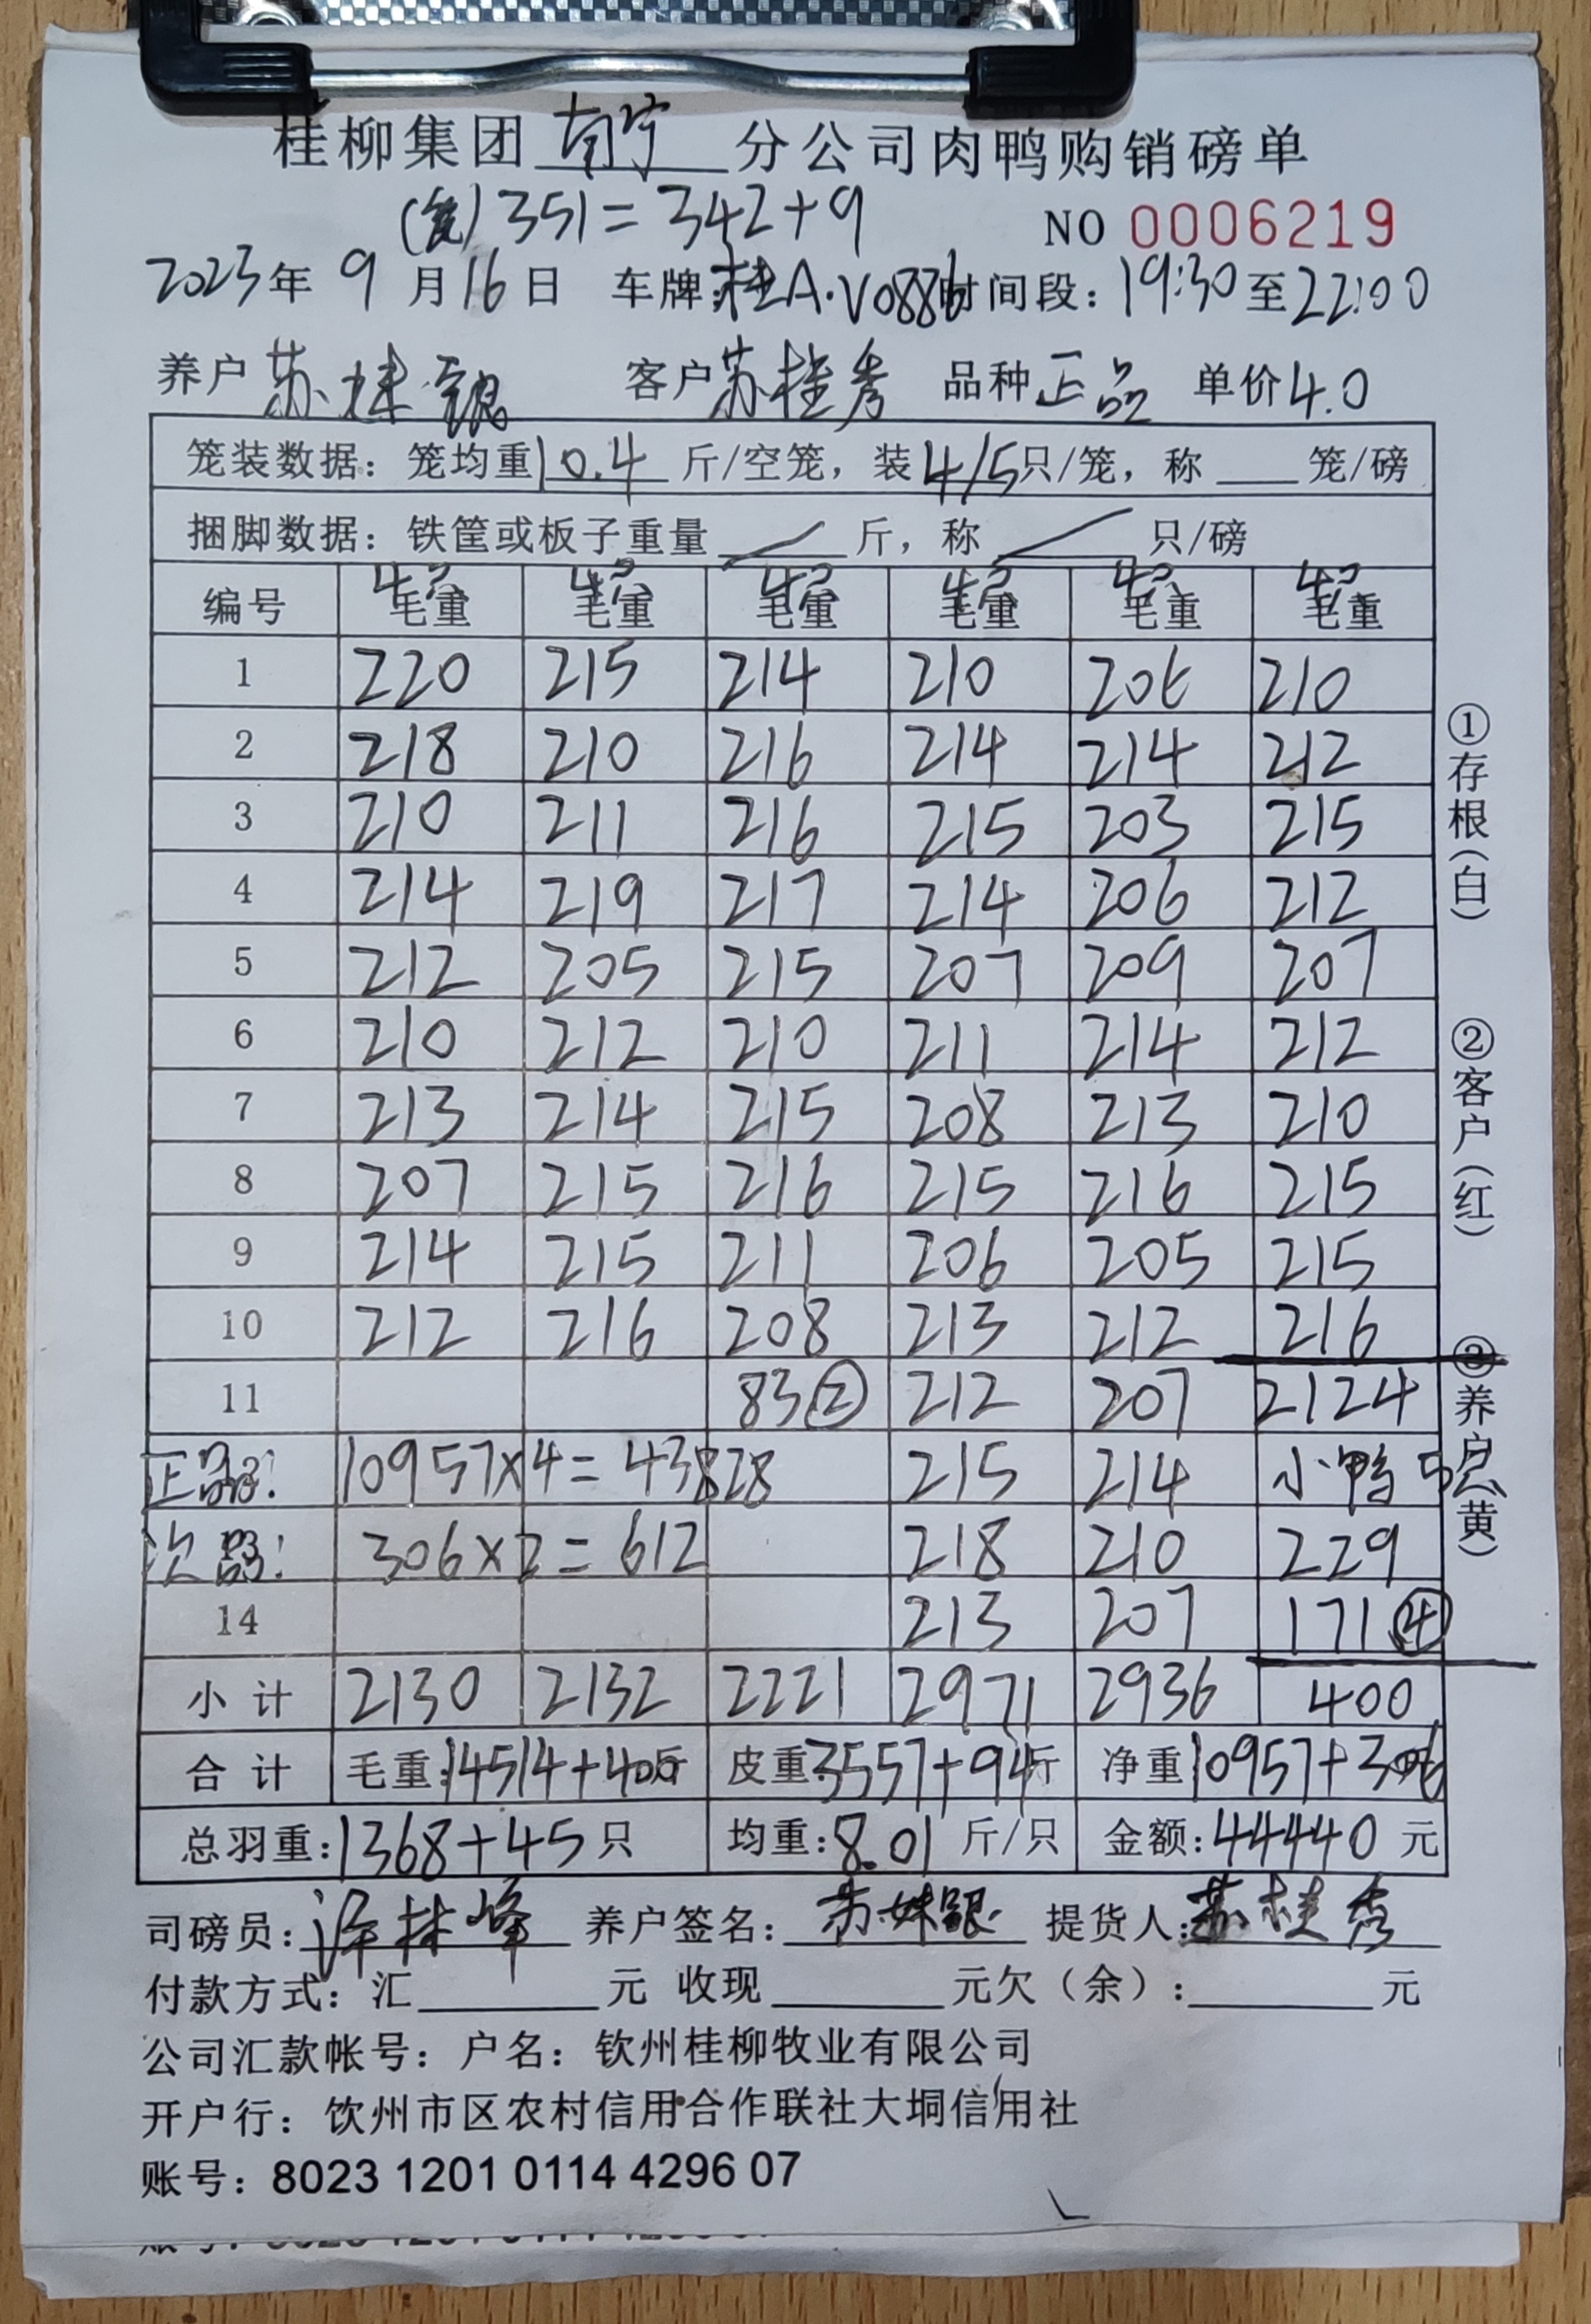 桂柳集团 南宁 分公司肉鸭购销磅单
351=342+9
NO 0006219
2023年 9 月16日 车牌:桂A·V0886 时间段:19:30至22:00
养户 苏妹银 客户 苏桂秀 品种 正品 单价 4.0
笼装数据:笼均重 10.4 斤/空笼,装 4/5 只/笼,称 笼/磅
捆脚数据:铁筐或板子重量 / 斤,称 / 只/磅
编号 毛重 毛重 毛重 毛重 毛重 毛重
1 220 215 214 210 206 210
2 218 210 216 214 214 212
3 210 211 216 215 203 215
4 214 219 217 214 206 212
5 212 205 215 207 209 207
6 210 212 210 211 214 212
7 213 214 215 208 213 210
8 207 215 216 215 216 215
9 214 215 211 206 205 215
10 212 216 208 213 212 216
11 83② 212 207 2124
正品: 10957×4=43828 215 214 小鸭 5只
次品: 306×2=612 218 210 229
14 213 207 171④
小计 2130 2132 2221 2971 2936 400
合计 毛重:14514+400斤 皮重:3557+94斤 净重:10957+306
总羽重:1368+45只 均重:8.01 斤/只 金额:44440 元
司磅员: 养户签名:苏妹银 提货人:苏桂秀
付款方式:汇 元 收现 元欠(余): 元
公司汇款帐号:户名:钦州桂柳牧业有限公司
开户行:饮州市区农村信用合作联社大垌信用社
账号:8023 1201 0114 4296 07
①存根(白)
②客户(红)
③养户(黄)